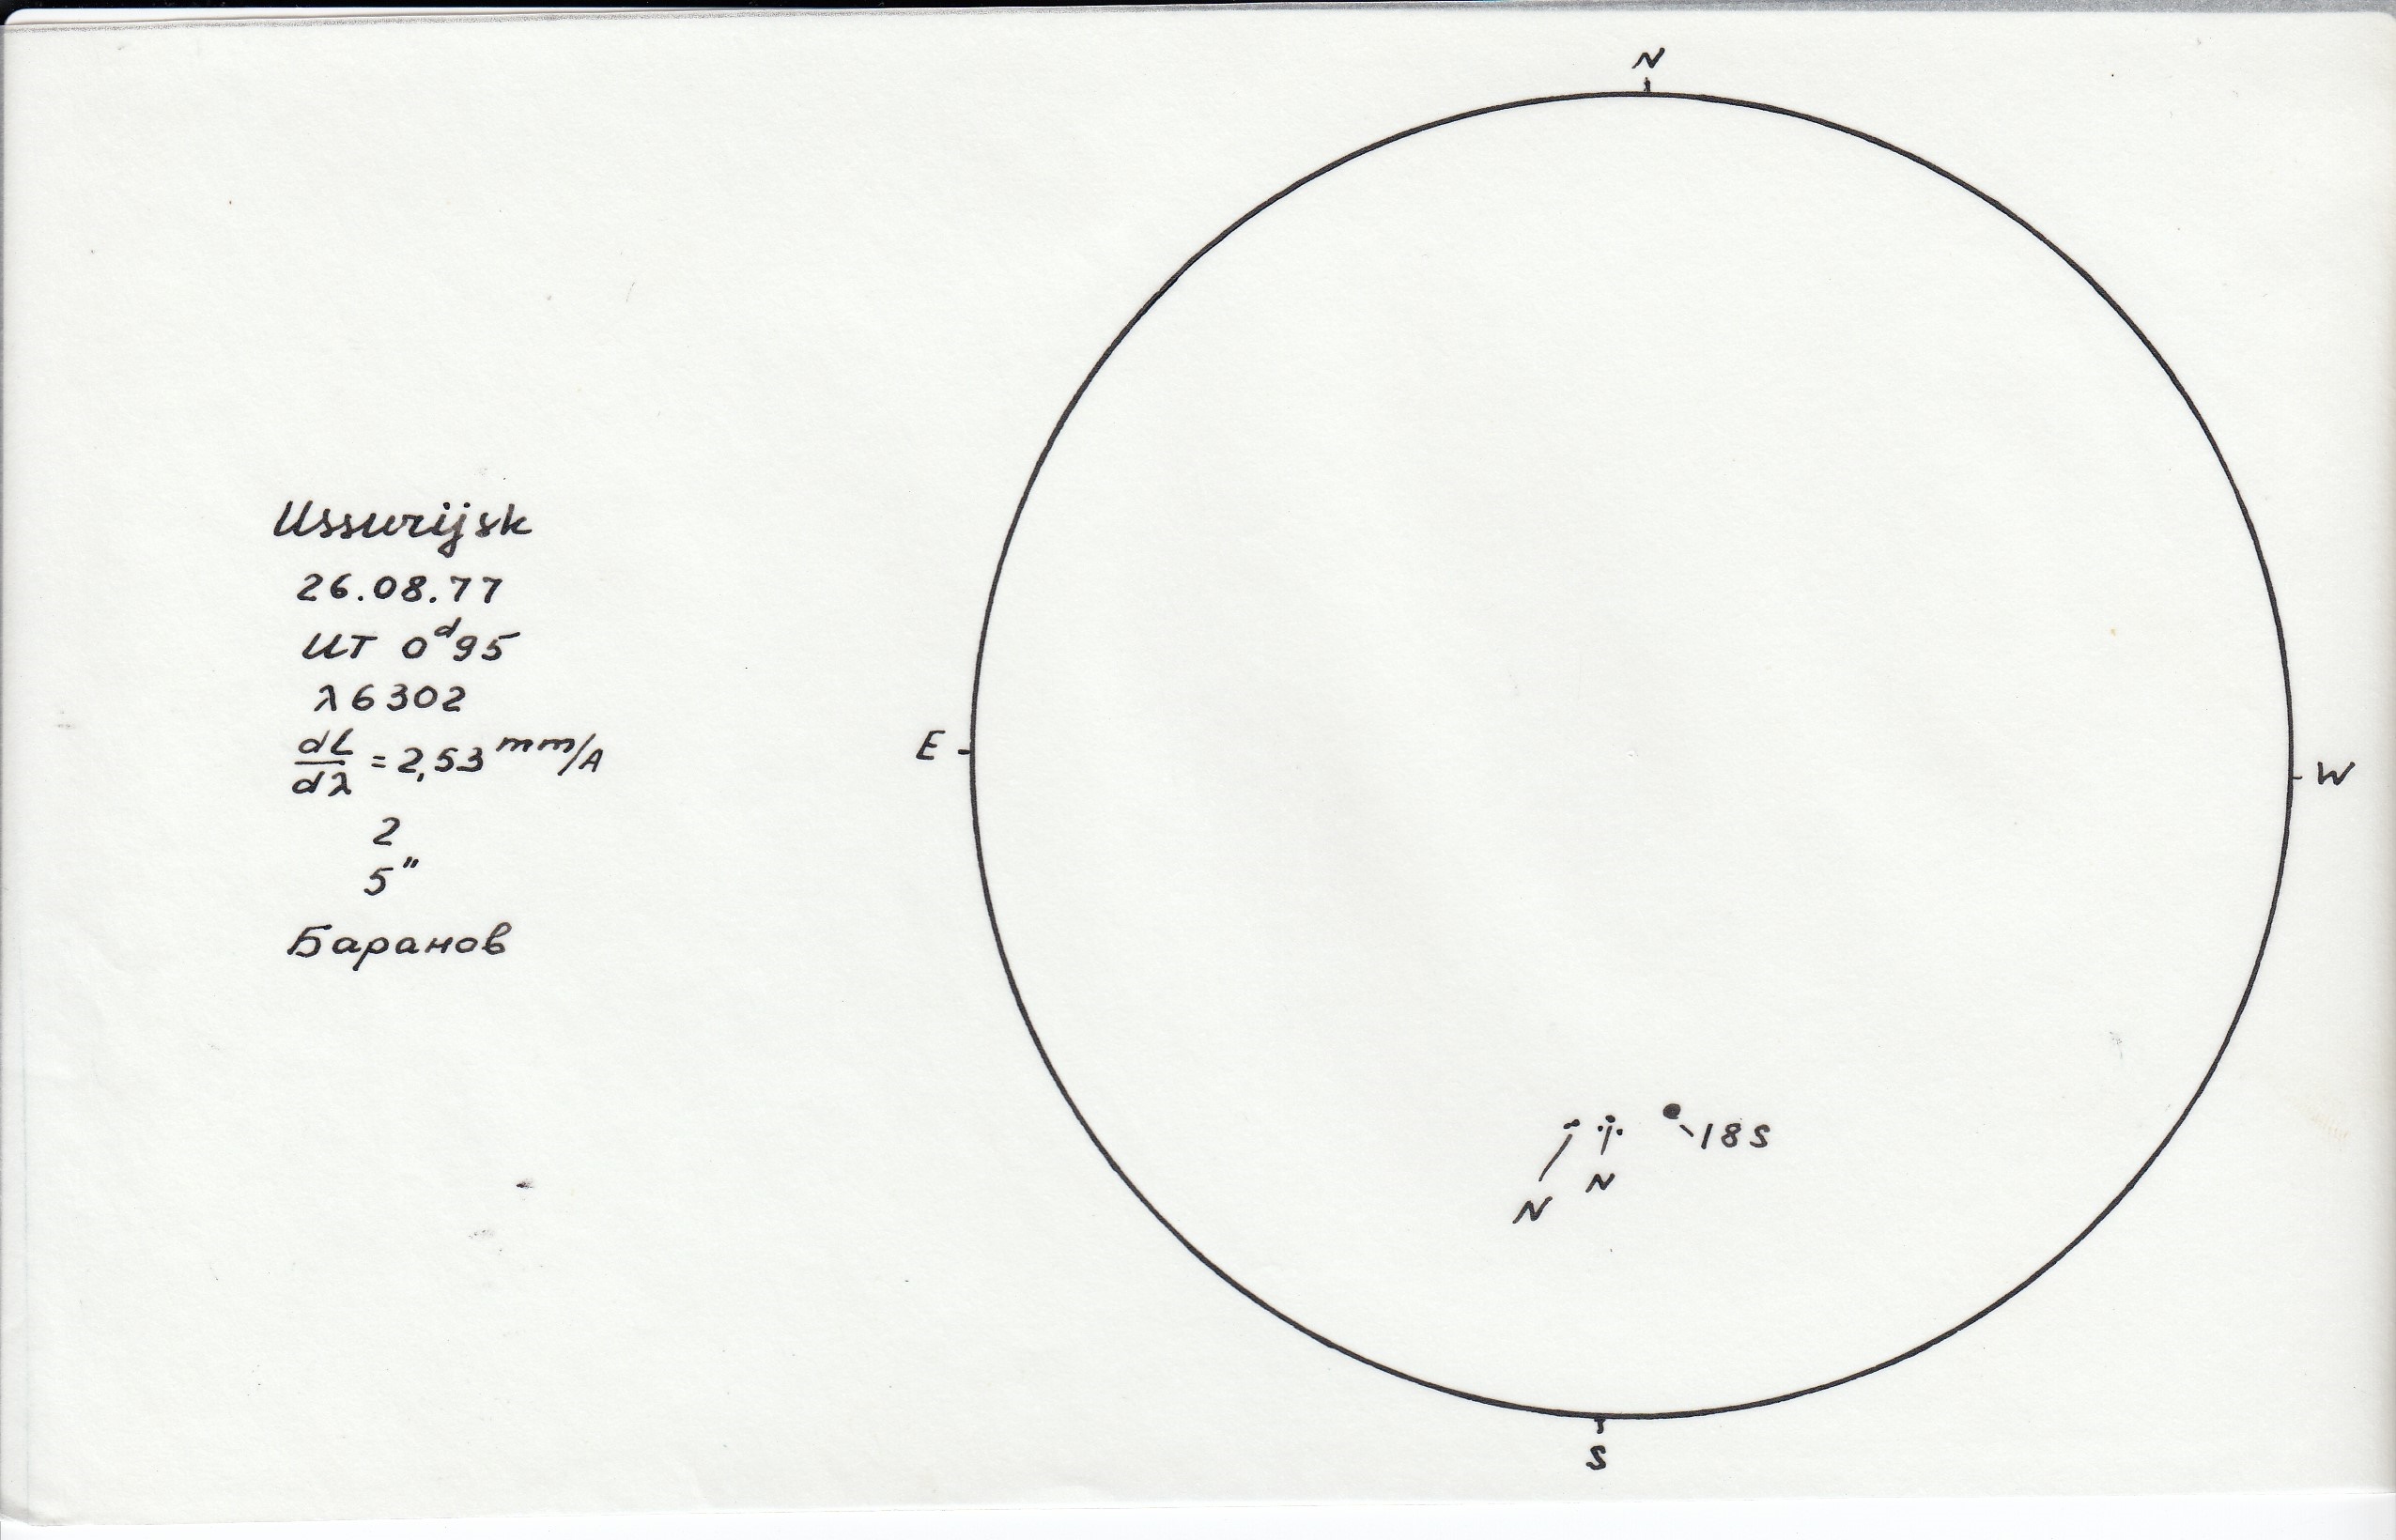 Ussurijsk
26.08.77
UT 0ᵈ95
λ6302
dL/dλ = 2,53 mm/A
2
5"
Баранов
N
E
W
18S
N
N
S